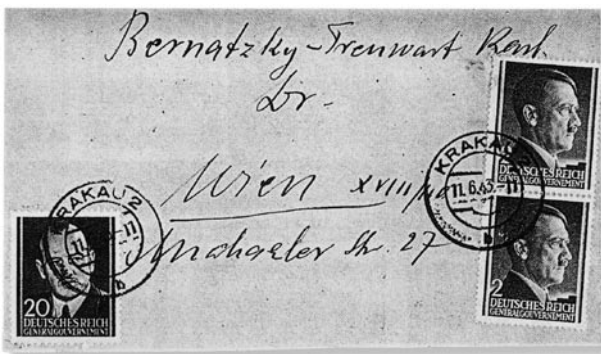 Bernatzky-Treuwart Karl
Dr.
Wien XVIII/
Michaeler Str. 27
KRAKAU 2
11.6.43.-11
b
DEUTSCHES REICH
GENERALGOUVERNEMENT
2
DEUTSCHES REICH
GENERALGOUVERNEMENT
KRAKAU 2
11
20
DEUTSCHES REICH
GENERALGOUVERNEMENT